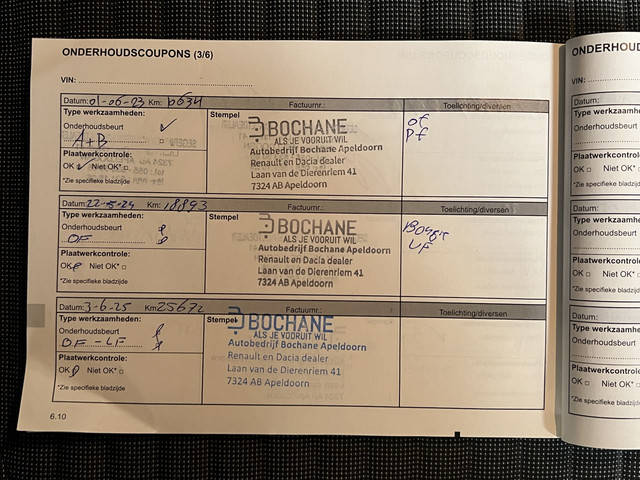 ONDERHOUDSCOUPONS (3/6)
VIN:
Datum: 01-06-23 Km: Factuurnr.: Toelichting/diversen
Type werkzaamheden:
Onderhoudsbeurt ✓
A+B
Plaatwerkcontrole:
OK ✓ Niet OK* □
*Zie specifieke bladzijde
Stempel
BOCHANE
ALS JE VOORUIT WIL
Autobedrijf Bochane Apeldoorn
Renault en Dacia dealer
Laan van de Dierenriem 41
7324 AB Apeldoorn
OF
PF
Datum: 22-5-24 Km: 18893 Factuurnr.: Toelichting/diversen
Type werkzaamheden:
Onderhoudsbeurt
OF
Plaatwerkcontrole:
OK Niet OK* □
*Zie specifieke bladzijde
Stempel
BOCHANE
ALS JE VOORUIT WIL
Autobedrijf Bochane Apeldoorn
Renault en Dacia dealer
Laan van de Dierenriem 41
7324 AB Apeldoorn
LF
Datum: 3-6-25 Km: 25672 Factuurnr.: Toelichting/diversen
Type werkzaamheden:
Onderhoudsbeurt
OF - LF
Plaatwerkcontrole:
OK Niet OK* □
*Zie specifieke bladzijde
Stempel
BOCHANE
ALS JE VOORUIT WIL
Autobedrijf Bochane Apeldoorn
Renault en Dacia dealer
Laan van de Dierenriem 41
7324 AB Apeldoorn
6.10
ONDERHOUD
VIN:
Datum:
Type werkzaamheden:
Onderhoudsbeurt
Plaatwerkcontrole:
OK □ Niet OK*
*Zie specifieke bladzijde
Datum:
Type werkzaamheden:
Onderhoudsbeurt
Plaatwerkcontrole:
OK □ Niet OK*
*Zie specifieke bladzijde
Datum:
Type werkzaamheden:
Onderhoudsbeurt
Plaatwerkcontrole:
OK □ Niet OK*
*Zie specifieke bladzijde